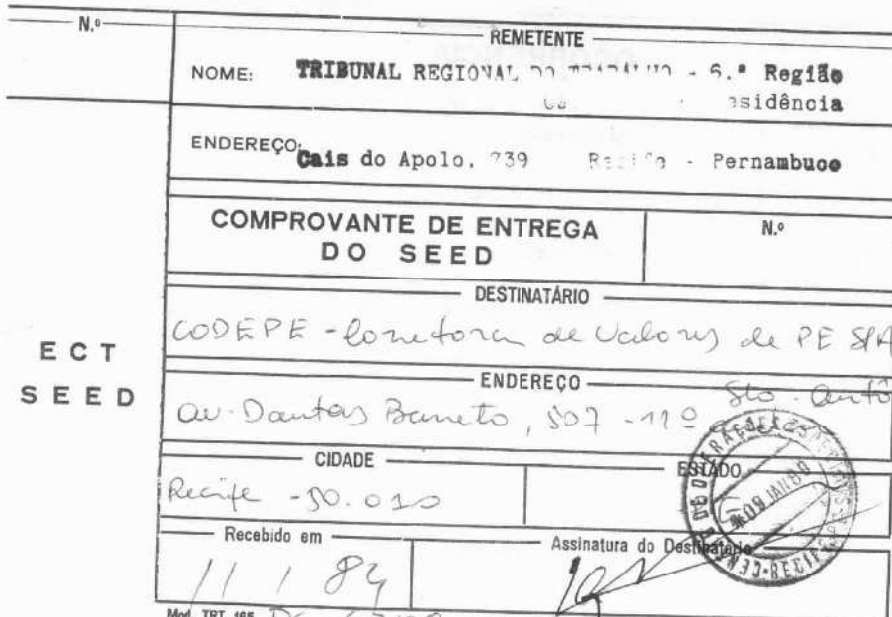 N.º
REMETENTE
NOME: TRIBUNAL REGIONAL DO TRABALHO - 6.ª Região
Presidência
ENDEREÇO: Cais do Apolo, 739 Recife - Pernambuco
COMPROVANTE DE ENTREGA
DO SEED
N.º
DESTINATÁRIO
CODEPE - Corretora de Valores de PE S/A
ECT
SEED
ENDEREÇO
Sto. Antô
Av. Dantas Barreto, 507 - 11º
CIDADE
ESTADO
Recife - 50.010
09 JAN
RECIFE
Recebido em
Assinatura do Destinatário
11 / 84
Mod. TRT 165